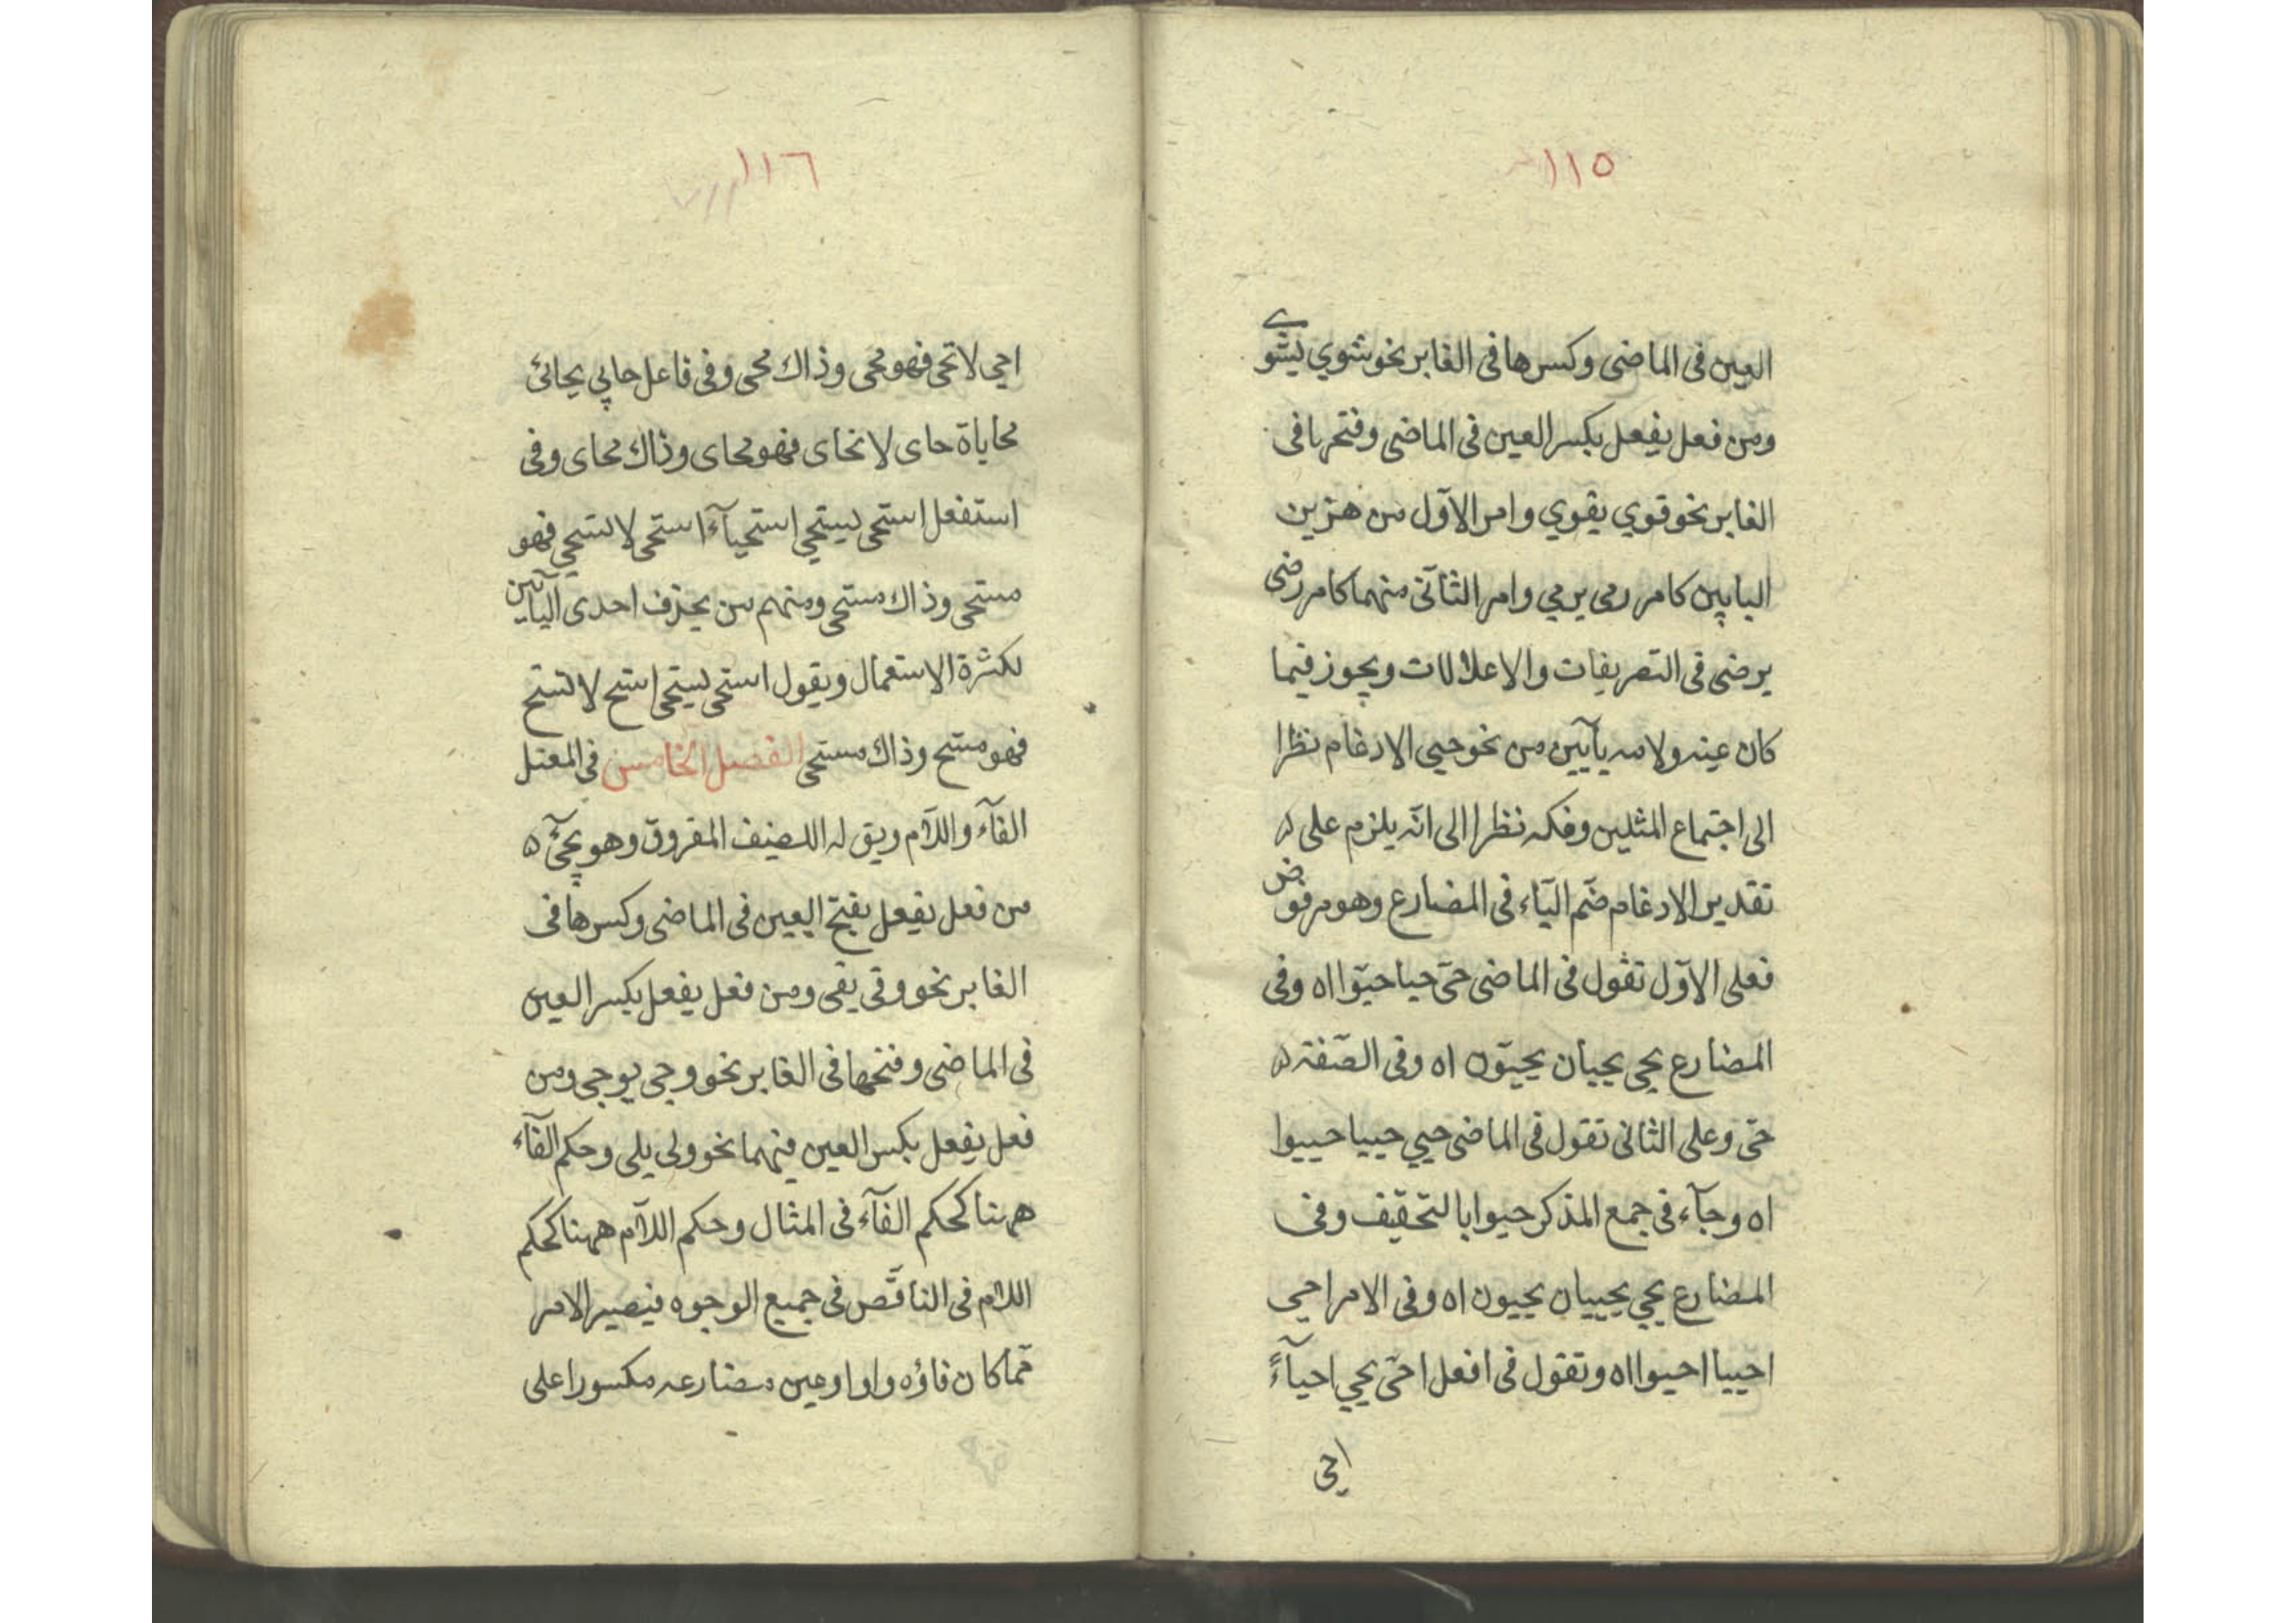 ١١٥
العين فى الماضى وكسرها فى الغابر نحو شوي يشوى
ومن فعل يفعل بكسر العين فى الماضى وفتحها فى
الغابر نحو قوي يقوي وامر الاوّل من هذين
البابين كامر رمى يرمي وامر الثانى منهما كامر رضى
يرضى فى التصريفات والاعلالات ويجوز فيما
كان عينه ولامه يآيين من نحو حيى الادغام نظرا
الى اجتماع المثلين وفكه نظرا الى انّه يلزم على
تقدير الادغام ضم اليآء فى المضارع وهو مرفوض
فعلى الاوّل تقول فى الماضى حىّ حيا حيّوا اه وفى
المضارع يحي يحيان يحيّون اه وفى الصّفة
حىّ وعلى الثانى تقول فى الماضى حيي حييا حييوا
اه وجآء فى جمع المذكر حيوا بالتخفيف وفى
المضارع يحيي يحييان يحيون اه وفى الامر احى
احييا احيوا اه وتقول فى افعل احىّ يحيي احيآءً
احى
١١٦
احي لا تحى فهو محى وذاك محى وفى فاعل حايي يحائى
محاياة حاى لا تحاى فهو محاى وذاك محاى وفى
استفعل استحى يستحي استحيآءً استحى لا تستحي فهو
مستحى وذاك مستحى ومنهم من يحذف احدى اليآئين
لكثرة الاستعمال ويقول استحى يستحى استح لا تستح
فهو مستح وذاك مستحى الفصل الخامس فى المعتل
الفآء واللاّم ويق له اللفيف المفروق وهو يجئ
من فعل يفعل بفتح العين فى الماضى وكسرها فى
الغابر نحو وقى يقى ومن فعل يفعل بكسر العين
فى الماضى وفتحها فى الغابر نحو وجى يوجى ومن
فعل يفعل بكسر العين فيهما نحو ولى يلى وحكم الفآء
ههنا كحكم الفآء فى المثال وحكم اللاّم ههنا كحكم
اللاّم فى الناقص فى جميع الوجوه فيصير الامر
ممّا كان فاؤه واوا وعين مضارعه مكسورا على